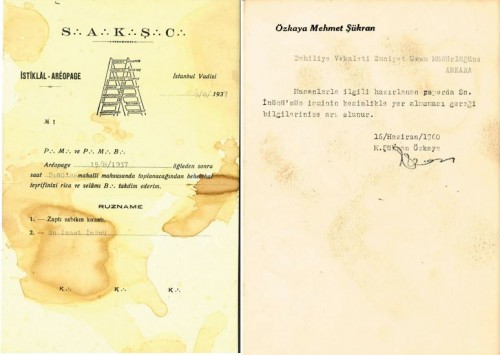 S∴ A∴ K∴ Ş∴ C∴
İSTİKLÂL-ARÉOPAGE
Istanbul Vadisi
193
№ 1
P∴ M∴ ve P∴ M∴ B∴
Aréopage 19/8/1937 öğleden sonra
saat mahalli mahsusunda toplanacağından behemehal
teşrifinizi rica ve selâmı B∴ takdim ederim.
RUZNAME
1. — Zaptı sabıkın kıraatı.
2. — İsmet İnönü
K∴ K∴ K∴
Özkaya Mehmet Şükran
Dahiliye Vekaleti Emniyet Umum Müdürlüğüne
ANKARA
Masonlarla ilgili hazırlanan raporda Sn.
İnönü'nün isminin kesinlikle yer almaması gereği
bilgilerinize arz olunur.
16/Haziran/1960
M.Şükran Özkaya